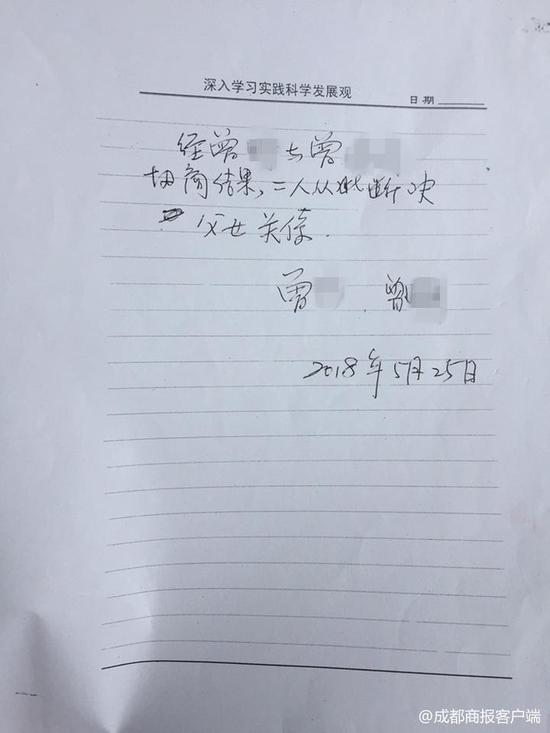 深入学习实践科学发展观
日期
经曾 与曾
协商结果，二人从此断决
父女关系.
曾 曾
2018年5月25日
@成都商报客户端